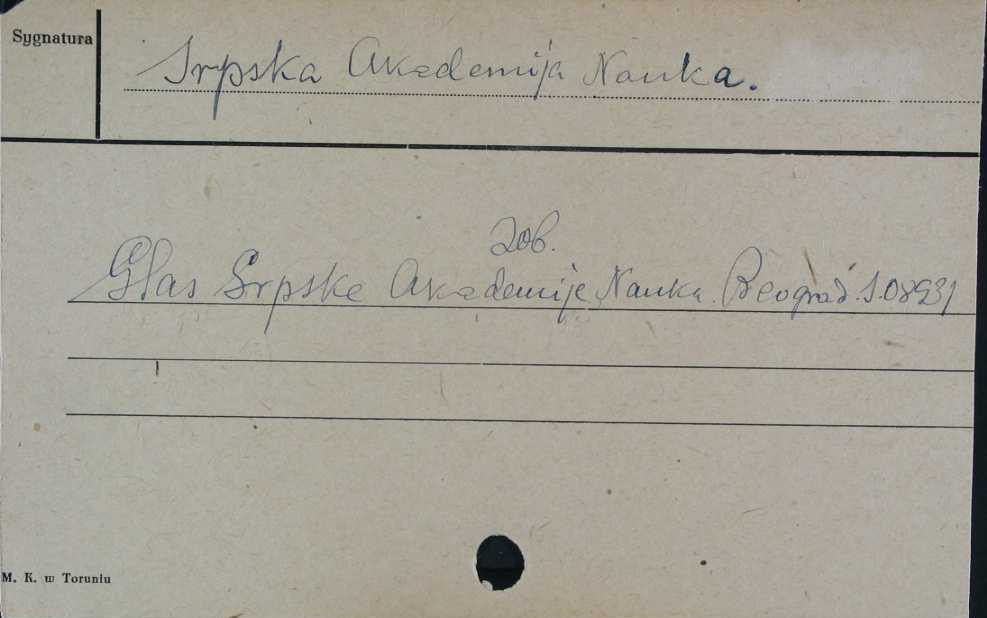 Sygnatura
Srpska Akademija Nauka.
Zob.
Glas Srpske Akademije Nauka. Beograd. S.08931
M. K. w Toruniu